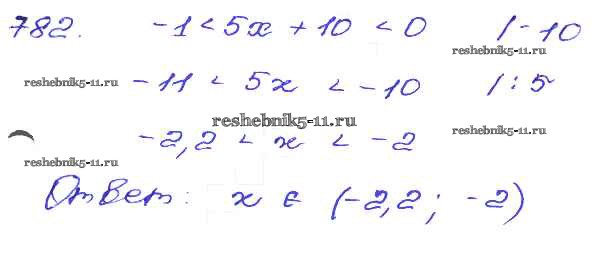 782. -1 < 5x + 10 < 0 /-10
reshebnik5-11.ru
reshebnik5-11.ru -11 < 5x < -10 /:5
reshebnik5-11.ru
-2,2 < x < -2 reshebnik5-11.ru
reshebnik5-11.ru
Ответ: x ∈ (-2,2; -2)